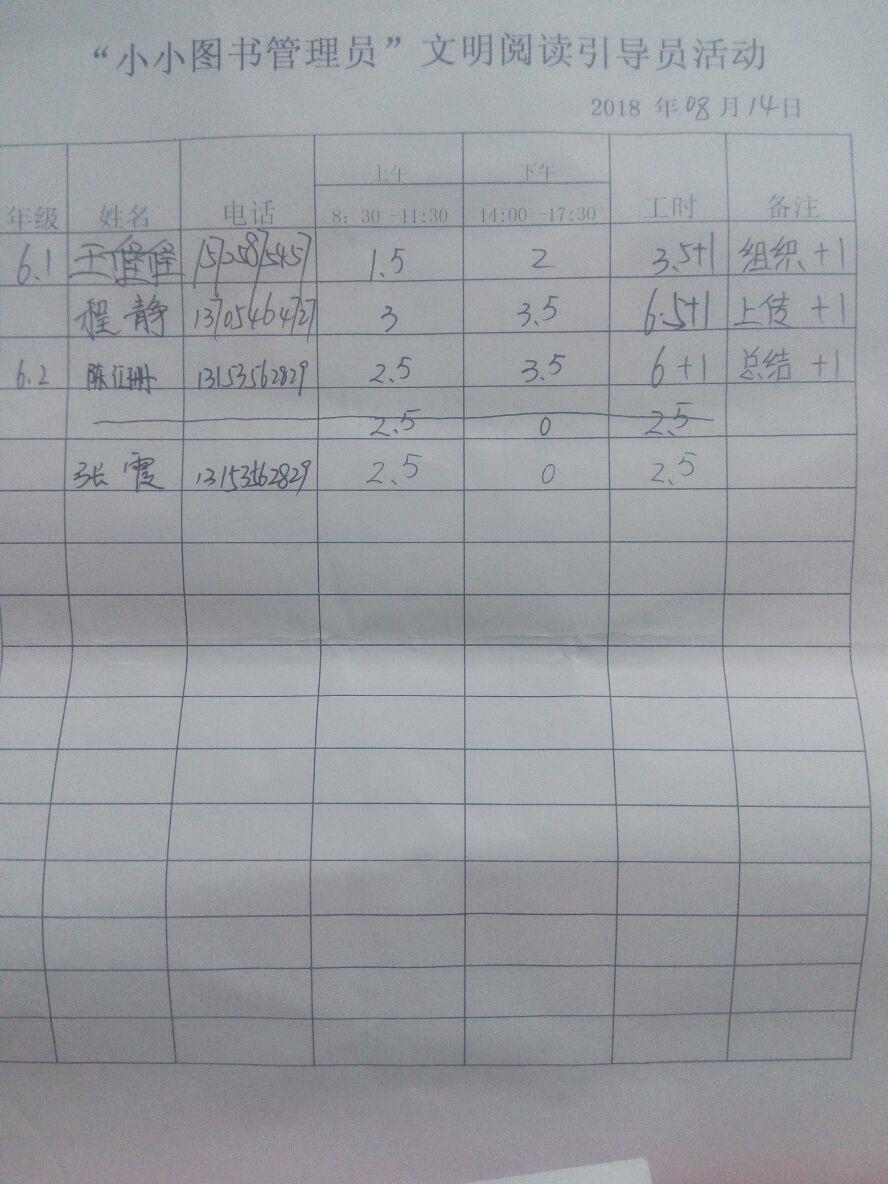 “小小图书管理员”文明阅读引导员活动
2018 年 08 月 14 日
上午 下午
年级 姓名 电话 8：30 -11:30 14:00 -17:30 工时 备注
6.1 王 15725875457 1.5 2 3.5+1 组织 +1
程静 13705464727 3 3.5 6.5+1 上传 +1
6.2 陈 13153562829 2.5 3.5 6+1 总结 +1
2.5 0 2.5
张霞 13153562829 2.5 0 2.5